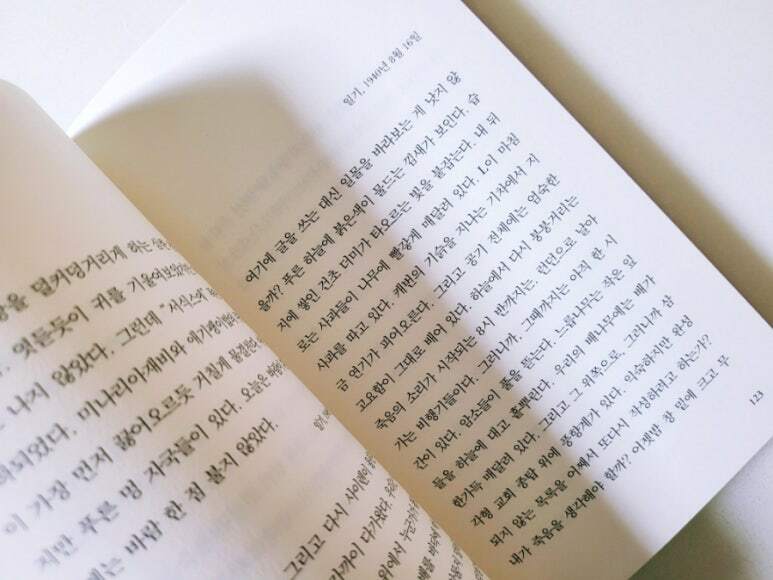 덜커덩거리게 하는
엿듣듯이 귀를 기울여보았
나지 않았다. 그런데 "서식스에
되었다. 미나리아재비와 애기괭이밥
이 가장 먼저 끓어오르듯 거칠게
지만 푸른 멍 자국들이 있다. 오늘은
에는 바람 한 점 불지 않았다.
그리고 다시 사이렌이
가까이 다가왔다.
위에서 누군가가
일기, 1940년 8월 16일
여기에 글을 쓰는 대신 일몰을 바라보는 게 낫지 않
을까? 푸른 하늘에 붉은색이 물드는 낌새가 보인다. 습
지에 쌓인 건초 더미가 타오르는 빛을 붙잡는다. 내 뒤
로는 사과들이 나무에 빨갛게 매달려 있다. L.이 마침
사과를 따고 있다. 캐번의 기슭을 지나는 기차에서 지
금 연기가 피어오른다. 그리고 공기 전체에는 엄숙한
고요함이 그대로 배어 있다. 하늘에서 다시 붕붕거리는
죽음의 소리가 시작되는 8시 반까지는. 런던으로 날아
가는 비행기들이다. 그러니까, 그때까지는 아직 한 시
간이 있다. 암소들이 풀을 뜯는다. 느릅나무는 작은 잎
들을 하늘에 대고 흩뿌린다. 우리의 배나무에는 배가
한가득 매달려 있다. 그리고 그 위쪽으로, 그러니까 삼
각형 교회 종탑 위에 풍향계가 있다. 익숙하지만 완성
되지 않는 목록을 어째서 또다시 작성하려고 하는가?
내가 죽음을 생각해야 할까? 어젯밤 창 밑에 크고 무
123